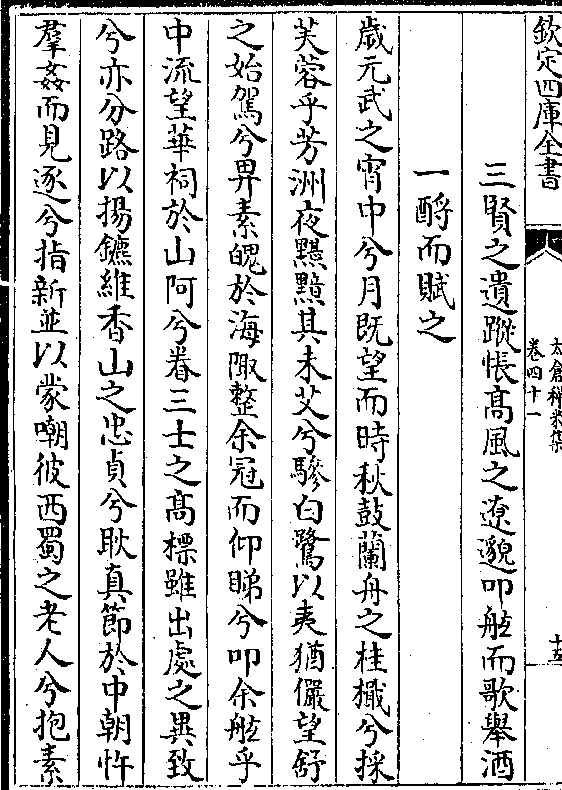 欽定四庫全書
太倉稊米集
卷四十一
十五
三賢之遺蹤悵髙風之遼邈叩舷而歌舉酒
一酹而賦之
歲元武之宵中兮月既望而時秋鼓蘭舟之桂檝兮採
芙蓉乎芳洲夜黮黮其未艾兮驂白鷺以夷猶儼望舒
之始駕兮畀素魄於海陬整余冠而仰睇兮叩余舷乎
中流望華祠於山阿兮眷三士之髙標雖出處之異致
兮亦分路以揚鑣維香山之忠貞兮耿真節於中朝忤
羣姦而見逐兮指新並以蒙嘲彼西蜀之老人兮抱素